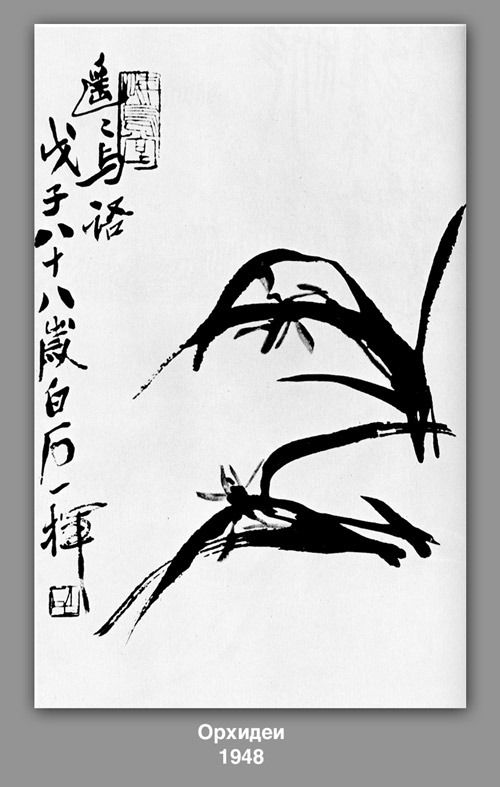 遙〻与
戊子八十八歲白石一揮
Орхидеи
1948